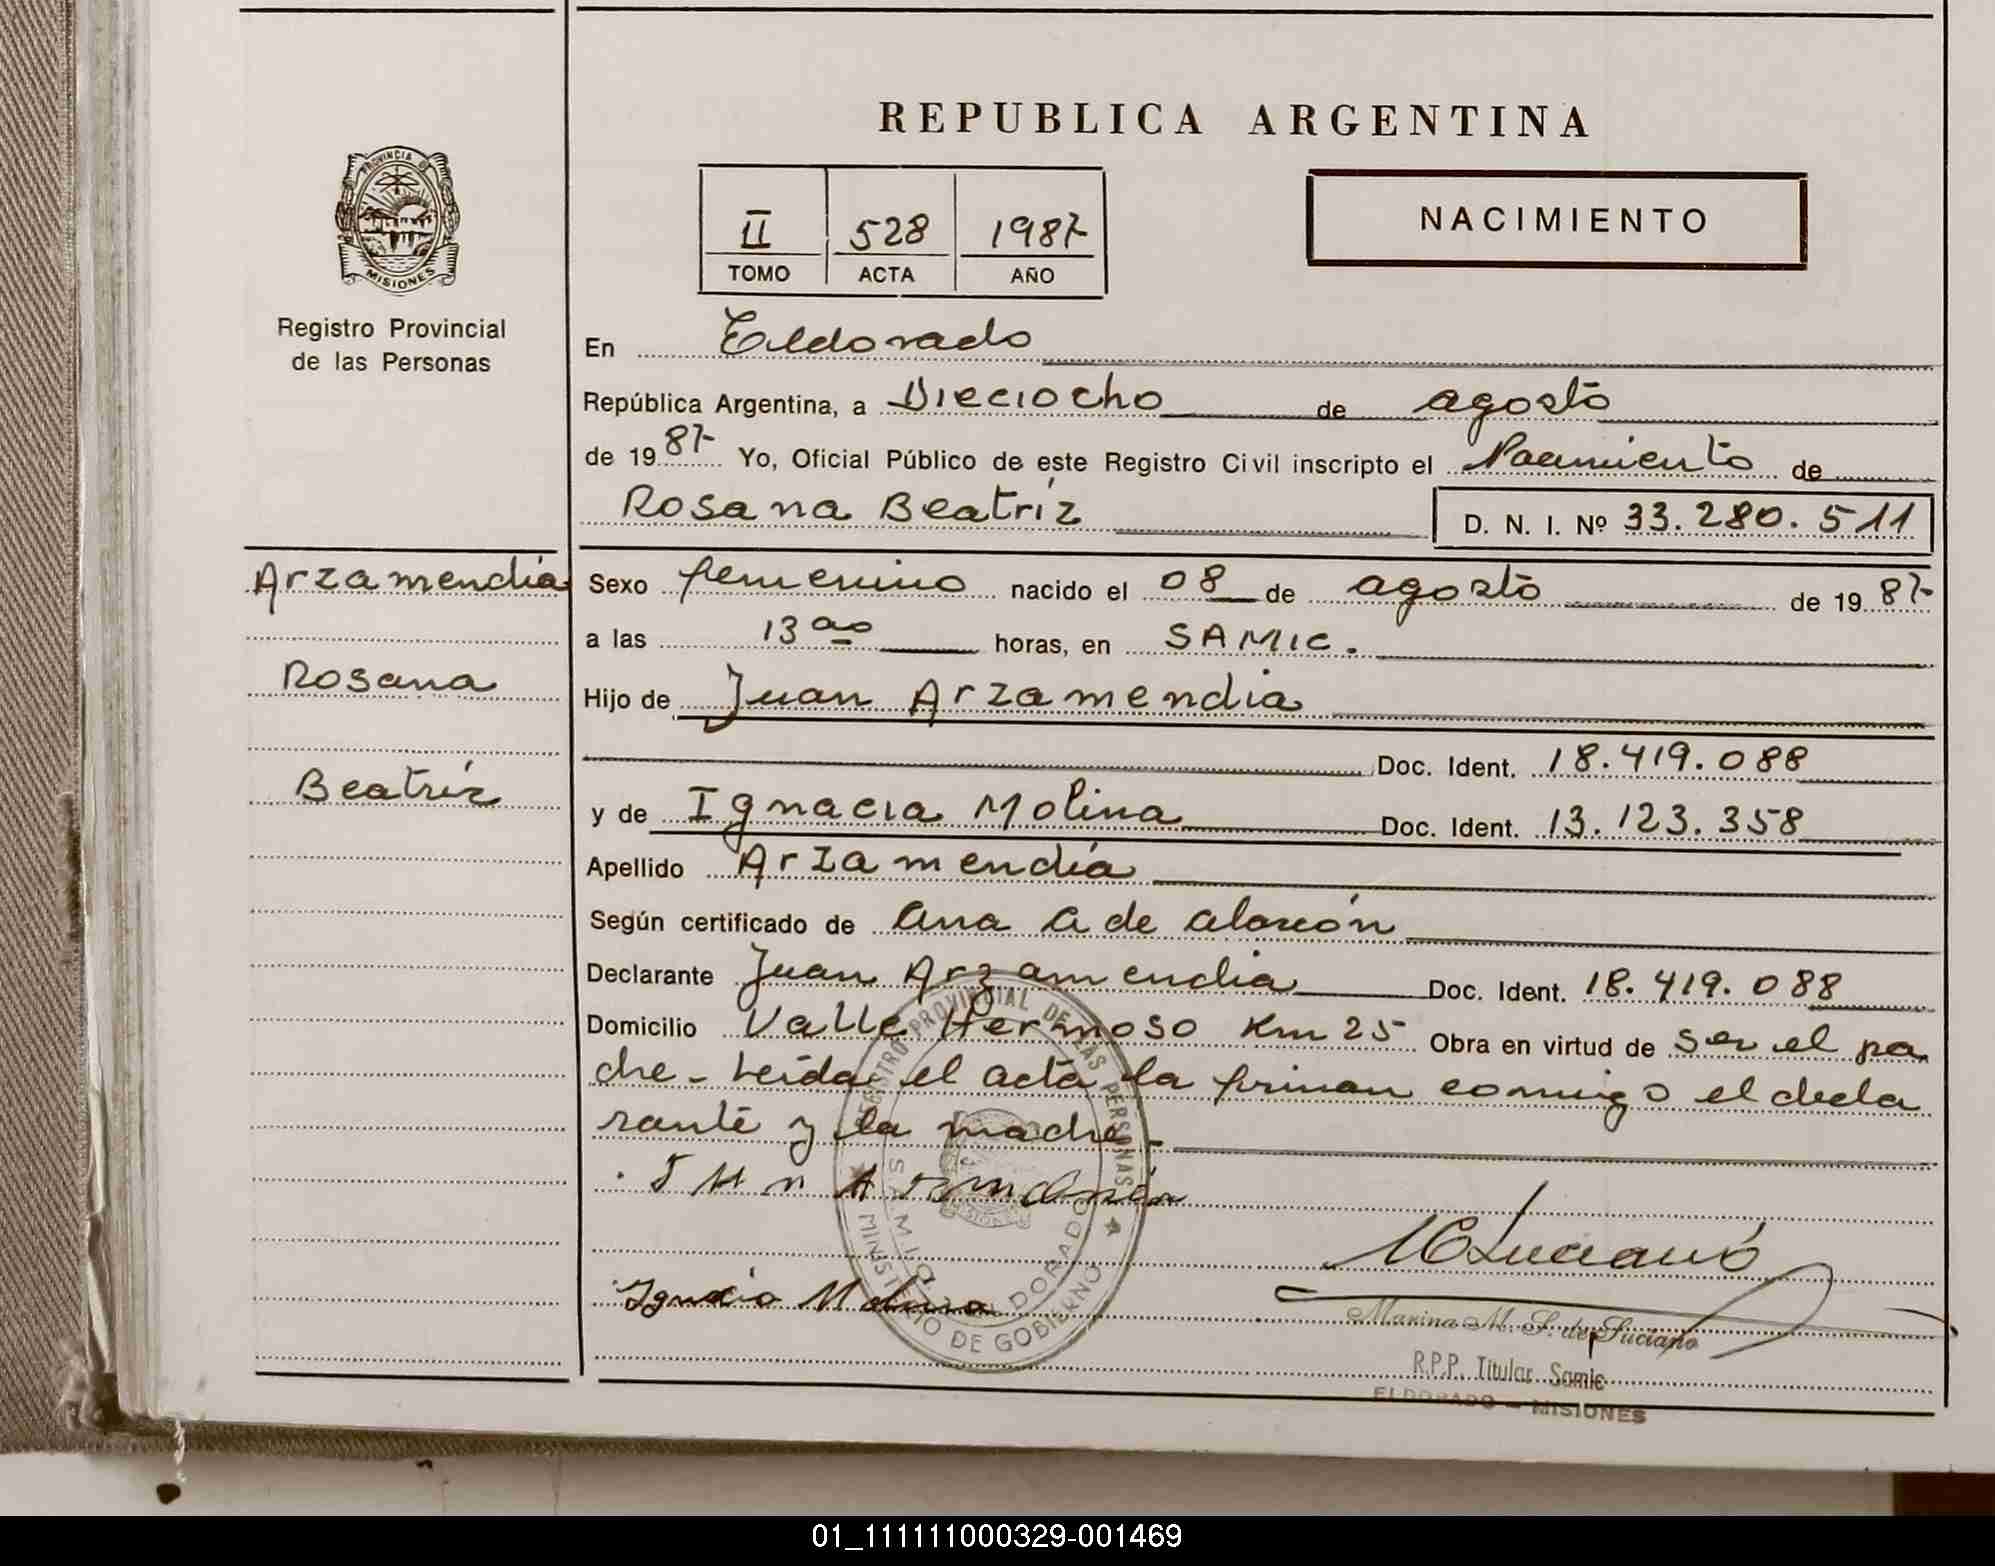 REPUBLICA ARGENTINA
PROVINCIA DE
MISIONES
Registro Provincial
de las Personas
II 528 1987
TOMO ACTA AÑO
NACIMIENTO
En Eldorado
República Argentina, a Dieciocho de agosto
de 1987 Yo, Oficial Público de este Registro Civil inscripto el Nacimiento de
Rosana Beatríz D. N. I. Nº 33.280.511
Arzamendia
Rosana
Beatríz
Sexo femenino nacido el 08 de agosto de 1987
a las 13 00 horas, en SAMIC.
Hijo de Juan Arzamendia
Doc. Ident. 18.419.088
y de Ignacia Molina Doc. Ident. 13.123.358
Apellido Arzamendía
Según certificado de Ana A de Alarcón
Declarante Juan Arzamendia Doc. Ident. 18.419.088
Domicilio Valle Hermoso Km 25 Obra en virtud de ser el pa
dre - Leída el acta la firman conmigo el decla
rante y la madre -
Ignacio Molina
REGISTRO PROVINCIAL DE LAS PERSONAS
MINISTERIO DE GOBIERNO
SAMIC ELDORADO
MISIONES
Luciano
Marina M. S. de Luciano
R.P.P. Titular Samic
ELDORADO - MISIONES
01_111111000329-001469